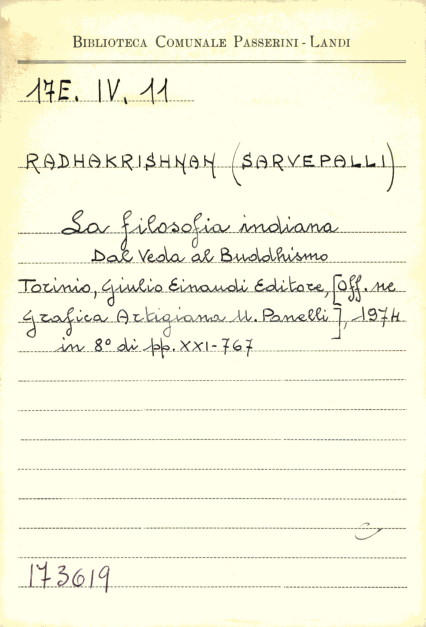 BIBLIOTECA COMUNALE PASSERINI - LANDI
17E. IV. 11
RADHAKRISHNAN (SARVEPALLI)
La filosofia indiana
Dal Veda al Buddhismo
Torinio, Giulio Einaudi Editore, [Off. ne
Grafica Artigiana U. Panelli], 1974
in 8° di pp. XXI-767
173619